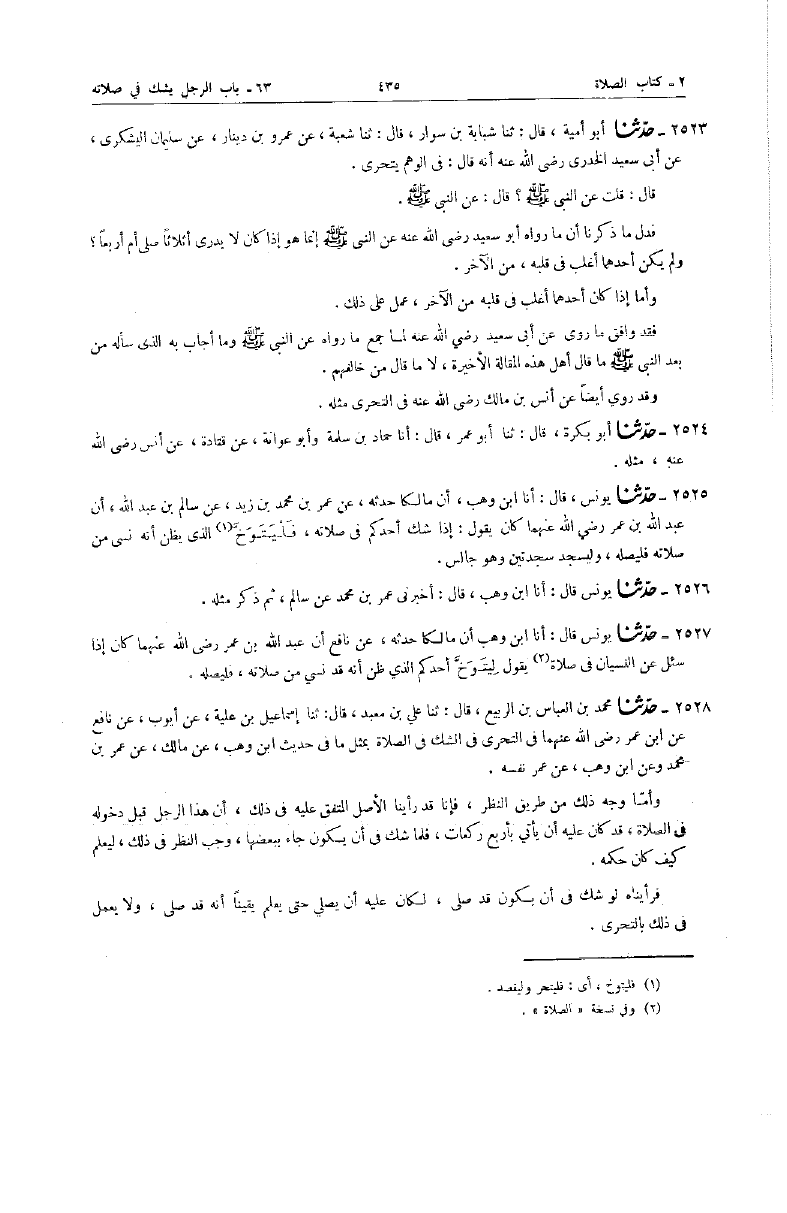 ٢ - كتاب الصلاة ٤٣٥ ٦٣ - باب الرجل يشك في صلاته
٢٥٢٣ - حدثنا أبو أمية ، قال : ثنا شبابة بن سوار ، قال : ثنا شعبة ، عن عمرو بن دينار ، عن سليمان اليشكرى ،
عن أبى سعيد الخدرى رضى الله عنه أنه قال : فى الوهم يتحرى .
قال : قلت عن النبى ﷺ ؟ قال : عن النبى ﷺ .
فدل ما ذكرنا أن ما رواه أبو سعيد رضى الله عنه عن النبى ﷺ إنما هو إذا كان لا يدرى أثلاثاً صلى أم أربعاً ؟
ولم يكن أحدهما أغلب فى قلبه ، من الآخر .
وأما إذا كان أحدهما أغلب فى قلبه من الآخر ، عمل على ذلك .
فقد وافق ما روى عن أبى سعيد رضي الله عنه لما جمع ما رواه عن النبى ﷺ وما أجاب به الذى سأله من
بعد النبى ﷺ ما قال أهل هذه المقالة الأخيرة ، لا ما قال من خالفهم .
وقد روي أيضاً عن أنس بن مالك رضى الله عنه فى التحرى مثله .
٢٥٢٤ - حدثنا أبو بكرة ، قال : ثنا أبو عمر ، قال : أنا حماد بن سلمة وأبو عوانة ، عن قتادة ، عن أنس رضى الله
عنه ، مثله .
٢٥٢٥ - حدثنا يونس ، قال : أنا ابن وهب ، أن مالكا حدثه ، عن عمر بن محمد بن زيد ، عن سالم بن عبد الله ، أن
عبد الله بن عمر رضي الله عنهما كان يقول : إذا شك أحدكم فى صلاته ، فَلْيَتَوَخَّ(١) الذى يظن أنه نسى من
صلاته فليصله ، وليسجد سجدتين وهو جالس .
٢٥٢٦ - حدثنا يونس قال : أنا ابن وهب ، قال : أخبرنى عمر بن محمد عن سالم ، ثم ذكر مثله .
٢٥٢٧ - حدثنا يونس قال : أنا ابن وهب أن مالكا حدثه ، عن نافع أن عبد الله بن عمر رضى الله عنهما كان إذا
سئل عن النسيان فى صلاة(٢) يقول لِيَتَوَخَّ أحدكم الذي ظن أنه قد نسي من صلاته ، فليصله .
٢٥٢٨ - حدثنا محمد بن العباس بن الربيع ، قال : ثنا علي بن معبد ، قال: ثنا إسماعيل بن علية ، عن أيوب ، عن نافع
عن ابن عمر رضى الله عنهما فى التحرى فى الشك فى الصلاة بمثل ما فى حديث ابن وهب ، عن مالك ، عن عمر بن
محمد وعن ابن وهب ، عن عمر نفسه .
وأمّا وجه ذلك من طريق النظر ، فإنا قد رأينا الأصل المتفق عليه فى ذلك ، أن هذا الرجل قبل دخوله
فى الصلاة ، قد كان عليه أن يأتي بأربع ركعات ، فلما شك فى أن يكون جاء ببعضها ، وجب النظر فى ذلك ، ليعلم
كيف كان حكمه .
فرأيناه لو شك فى أن يكون قد صلى ، لكان عليه أن يصلي حتى يعلم يقيناً أنه قد صلى ، ولا يعمل
فى ذلك بالتحرى .
(١) فليتوخ ، أى : فليتحر وليقصد .
(٢) وفي نسخة « الصلاة » .